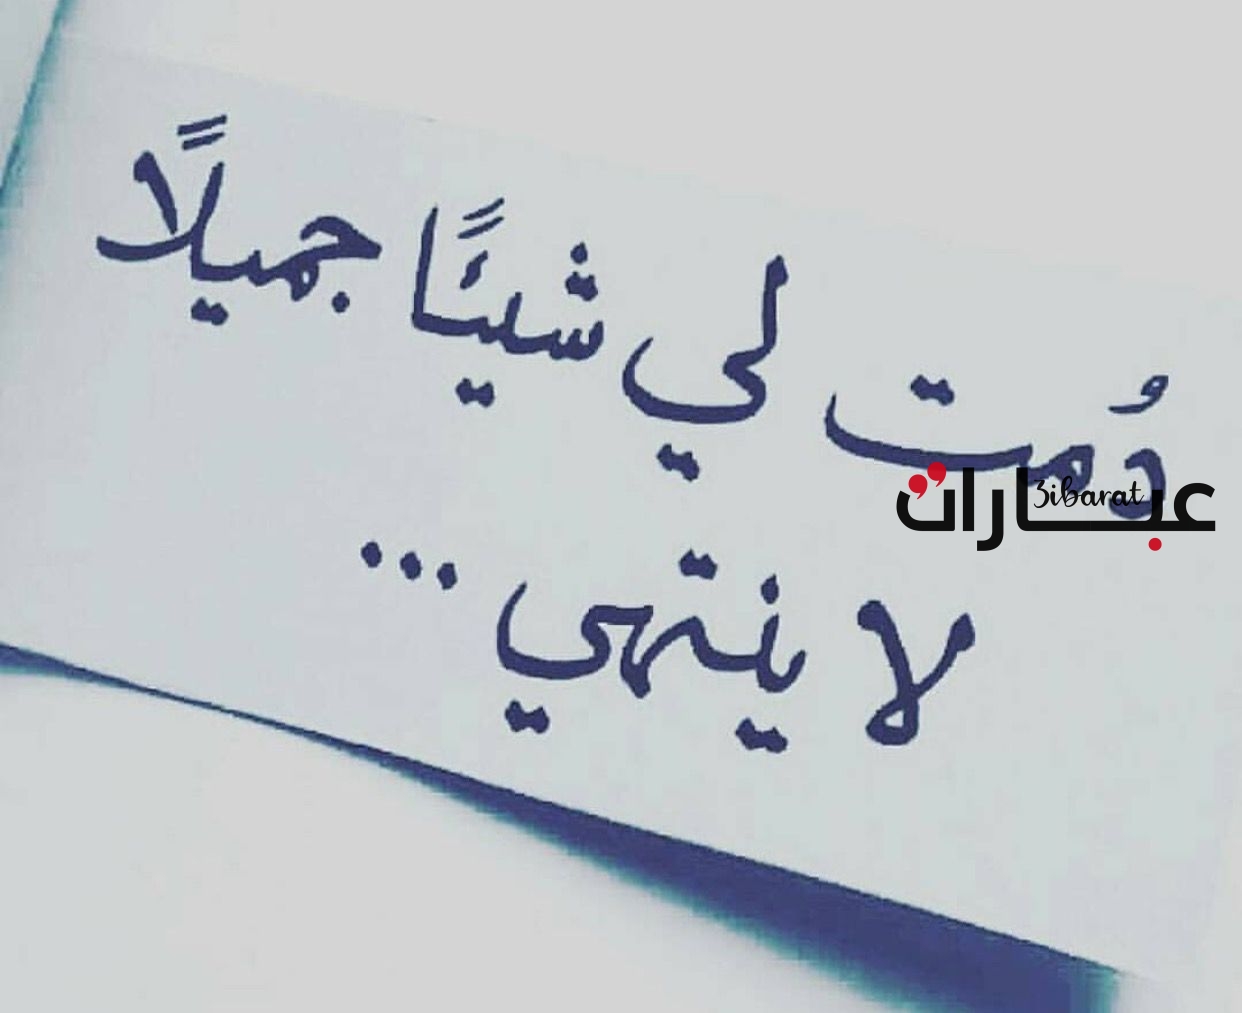 دُمت لي شيئًا جميلًا
عبارات
3ibarat
لا ينتهي ...